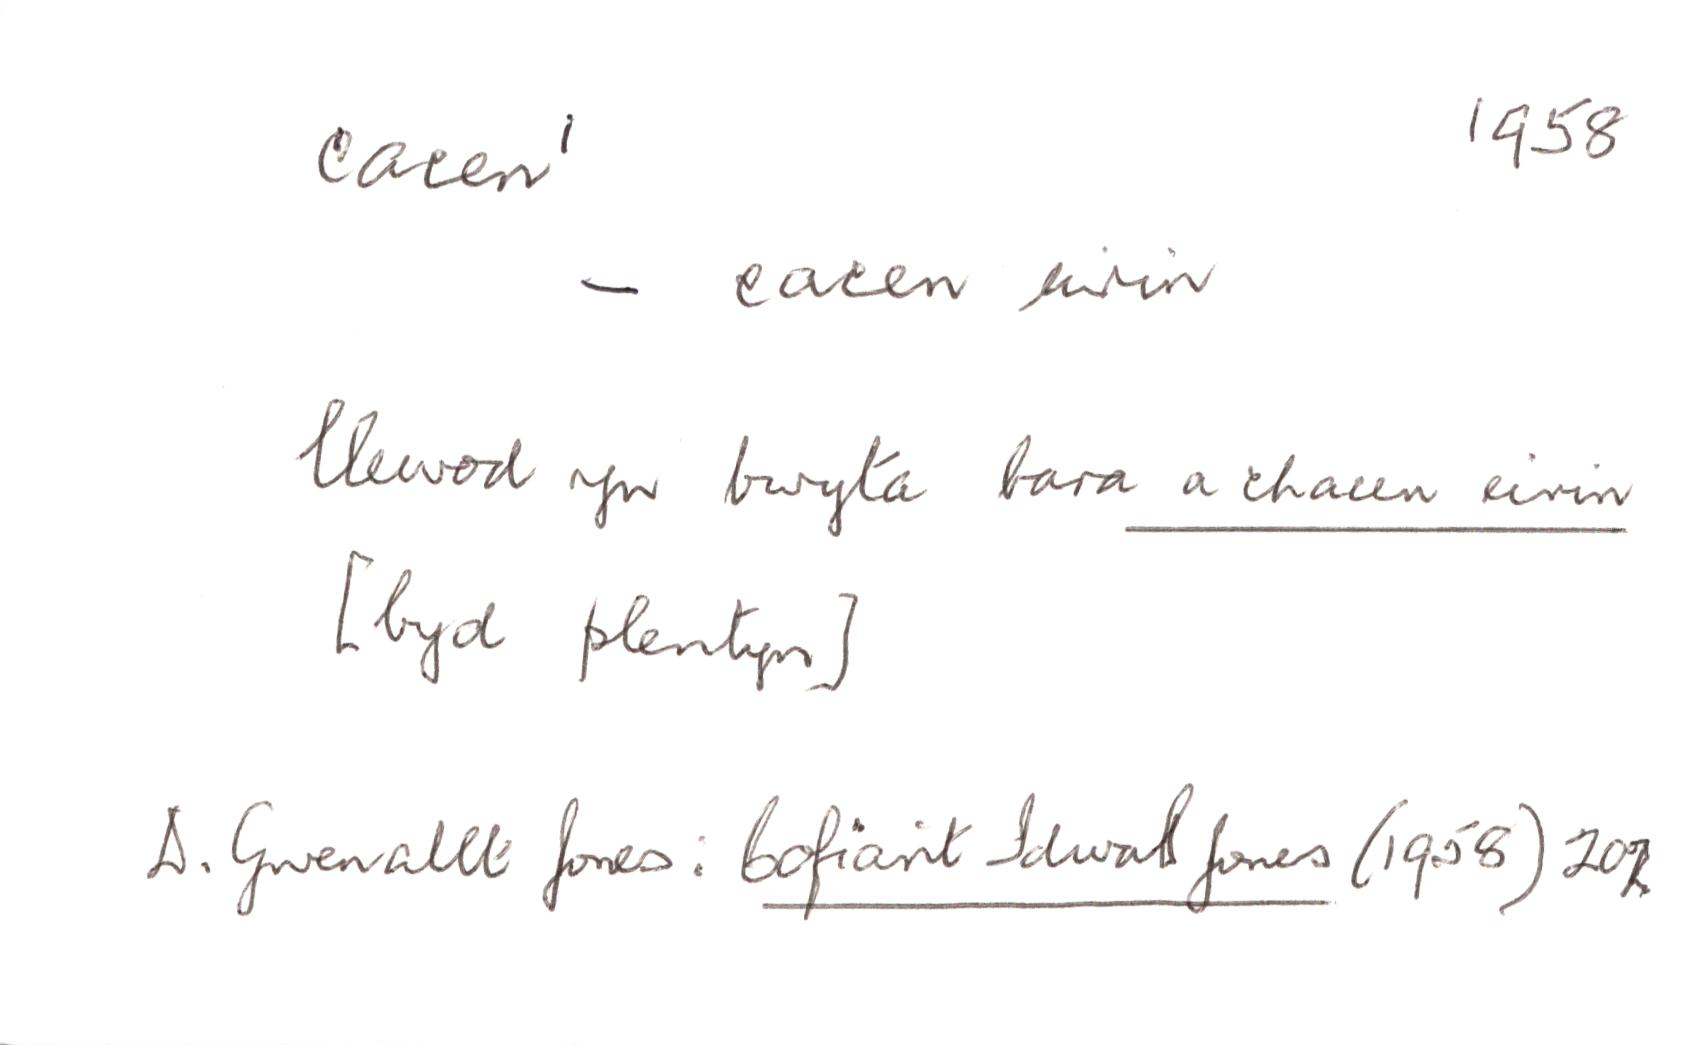 cacen¹ 1958
– cacen eirin
llewod yn bwyta bara a chacen eirin
[byd plentyn]
D. Gwenallt Jones: Cofiant Idwal Jones (1958)